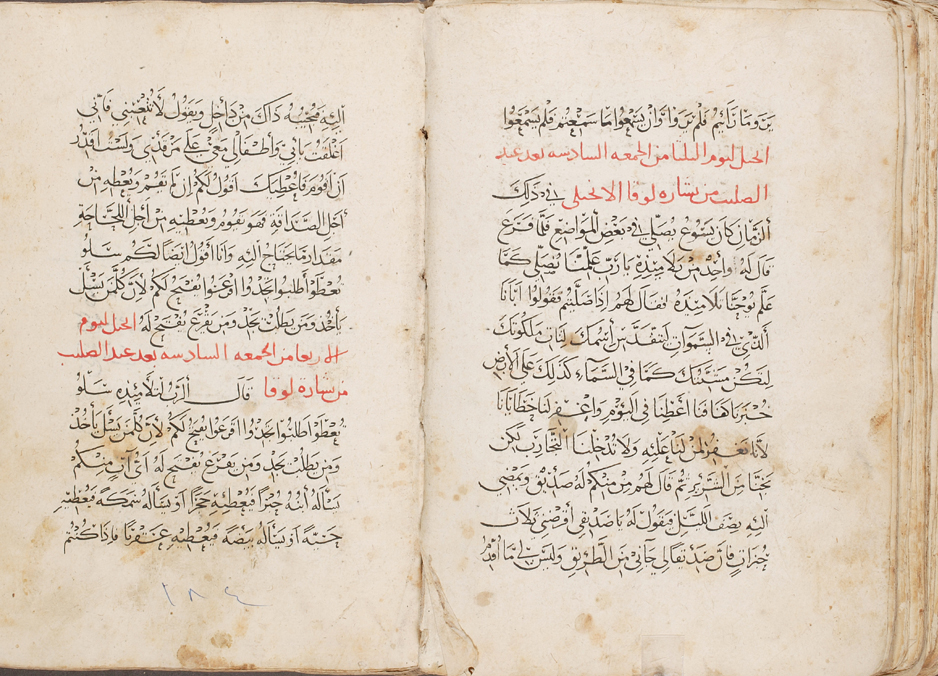 ترون وما رأيتم فلم تروا وان يسمعوا ما سمعتم فلم يسمعوا
انجيل ليوم الثلثا من الجمعه السادسه بعد عيد
الصليب من بشاره لوقا الانجيلي في ذلك
الزمان كان يسوع يصلي في بعض المواضع فلما فرغ
قال له واحد من تلاميذه يا رب علمنا نصلي كما
علم يوحنا تلاميذه فقال لهم اذا صليتم فقولوا ابانا
الذي في السموات ليتقدس اسمك لتات ملكوتك
لتكن مشيتك كما في السماء كذلك على الارض
خبزنا كفافنا اعطنا في اليوم واغفر لنا خطايانا
لانا نغفر لمن لنا عليه ولا تدخلنا التجارب لكن
نجنا من الشرير ثم قال لهم من منكم له صديق ويمضي
اليه نصف الليل فيقول له يا صديقي اقرضني ثلاث
خبزات فان صديقا لي جاني من الطريق وليس لي ما اقدم
اليه فيجيبه ذاك من داخل ويقول لا تتعبني فاني
اغلقت بابي واطفالي معي على مرقدي ولست اقدر
ان اقوم فاعطيك اقول لكم ان لم تقم ويعطيه من
اجل الصداقة فهو يقوم ويعطيه من اجل اللجاجة
مقدار ما يحتاج اليه وانا اقول ايضا لكم سلوا
تعطوا اطلبوا تجدوا اقرعوا يفتح لكم لان كلمن يسل
يأخذ ومن يطلب يجد ومن يقرع يفتح له انجيل ليوم
الاربعا من الجمعه السادسه بعد عيد الصليب
من بشارة لوقا قال الرب لتلاميذه سلوا
تعطوا اطلبوا تجدوا اقرعوا يفتح لكم لان كلمن يسل يأخذ
ومن يطلب يجد ومن يقرع يفتح له اي اب منكم
يسأله ابنه خبزا فيعطيه حجرا او يسأله سمكه فيعطيه
حية او يسأله بيضه فيعطيه عقربا فاذا كنتم
١٨٤